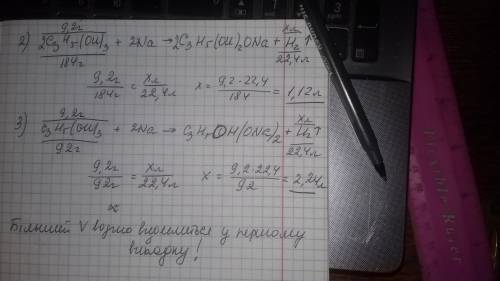 9,2г xл
2) 2C₃H₅(OH)₃ + 2Na → 2C₃H₅(OH)₂ONa + H₂↑
184г 22,4л
9,2г/184г = xл/22,4л x = 9,2·22,4/184 = 1,12л
9,2г xл
3) C₃H₅(OH)₃ + 2Na → C₃H₅OH(ONa)₂ + H₂↑
92г 22,4л
9,2г/92г = xл/22,4л x = 9,2·22,4/92 = 2,24л
Більший V водню виділиться у першому
випадку!